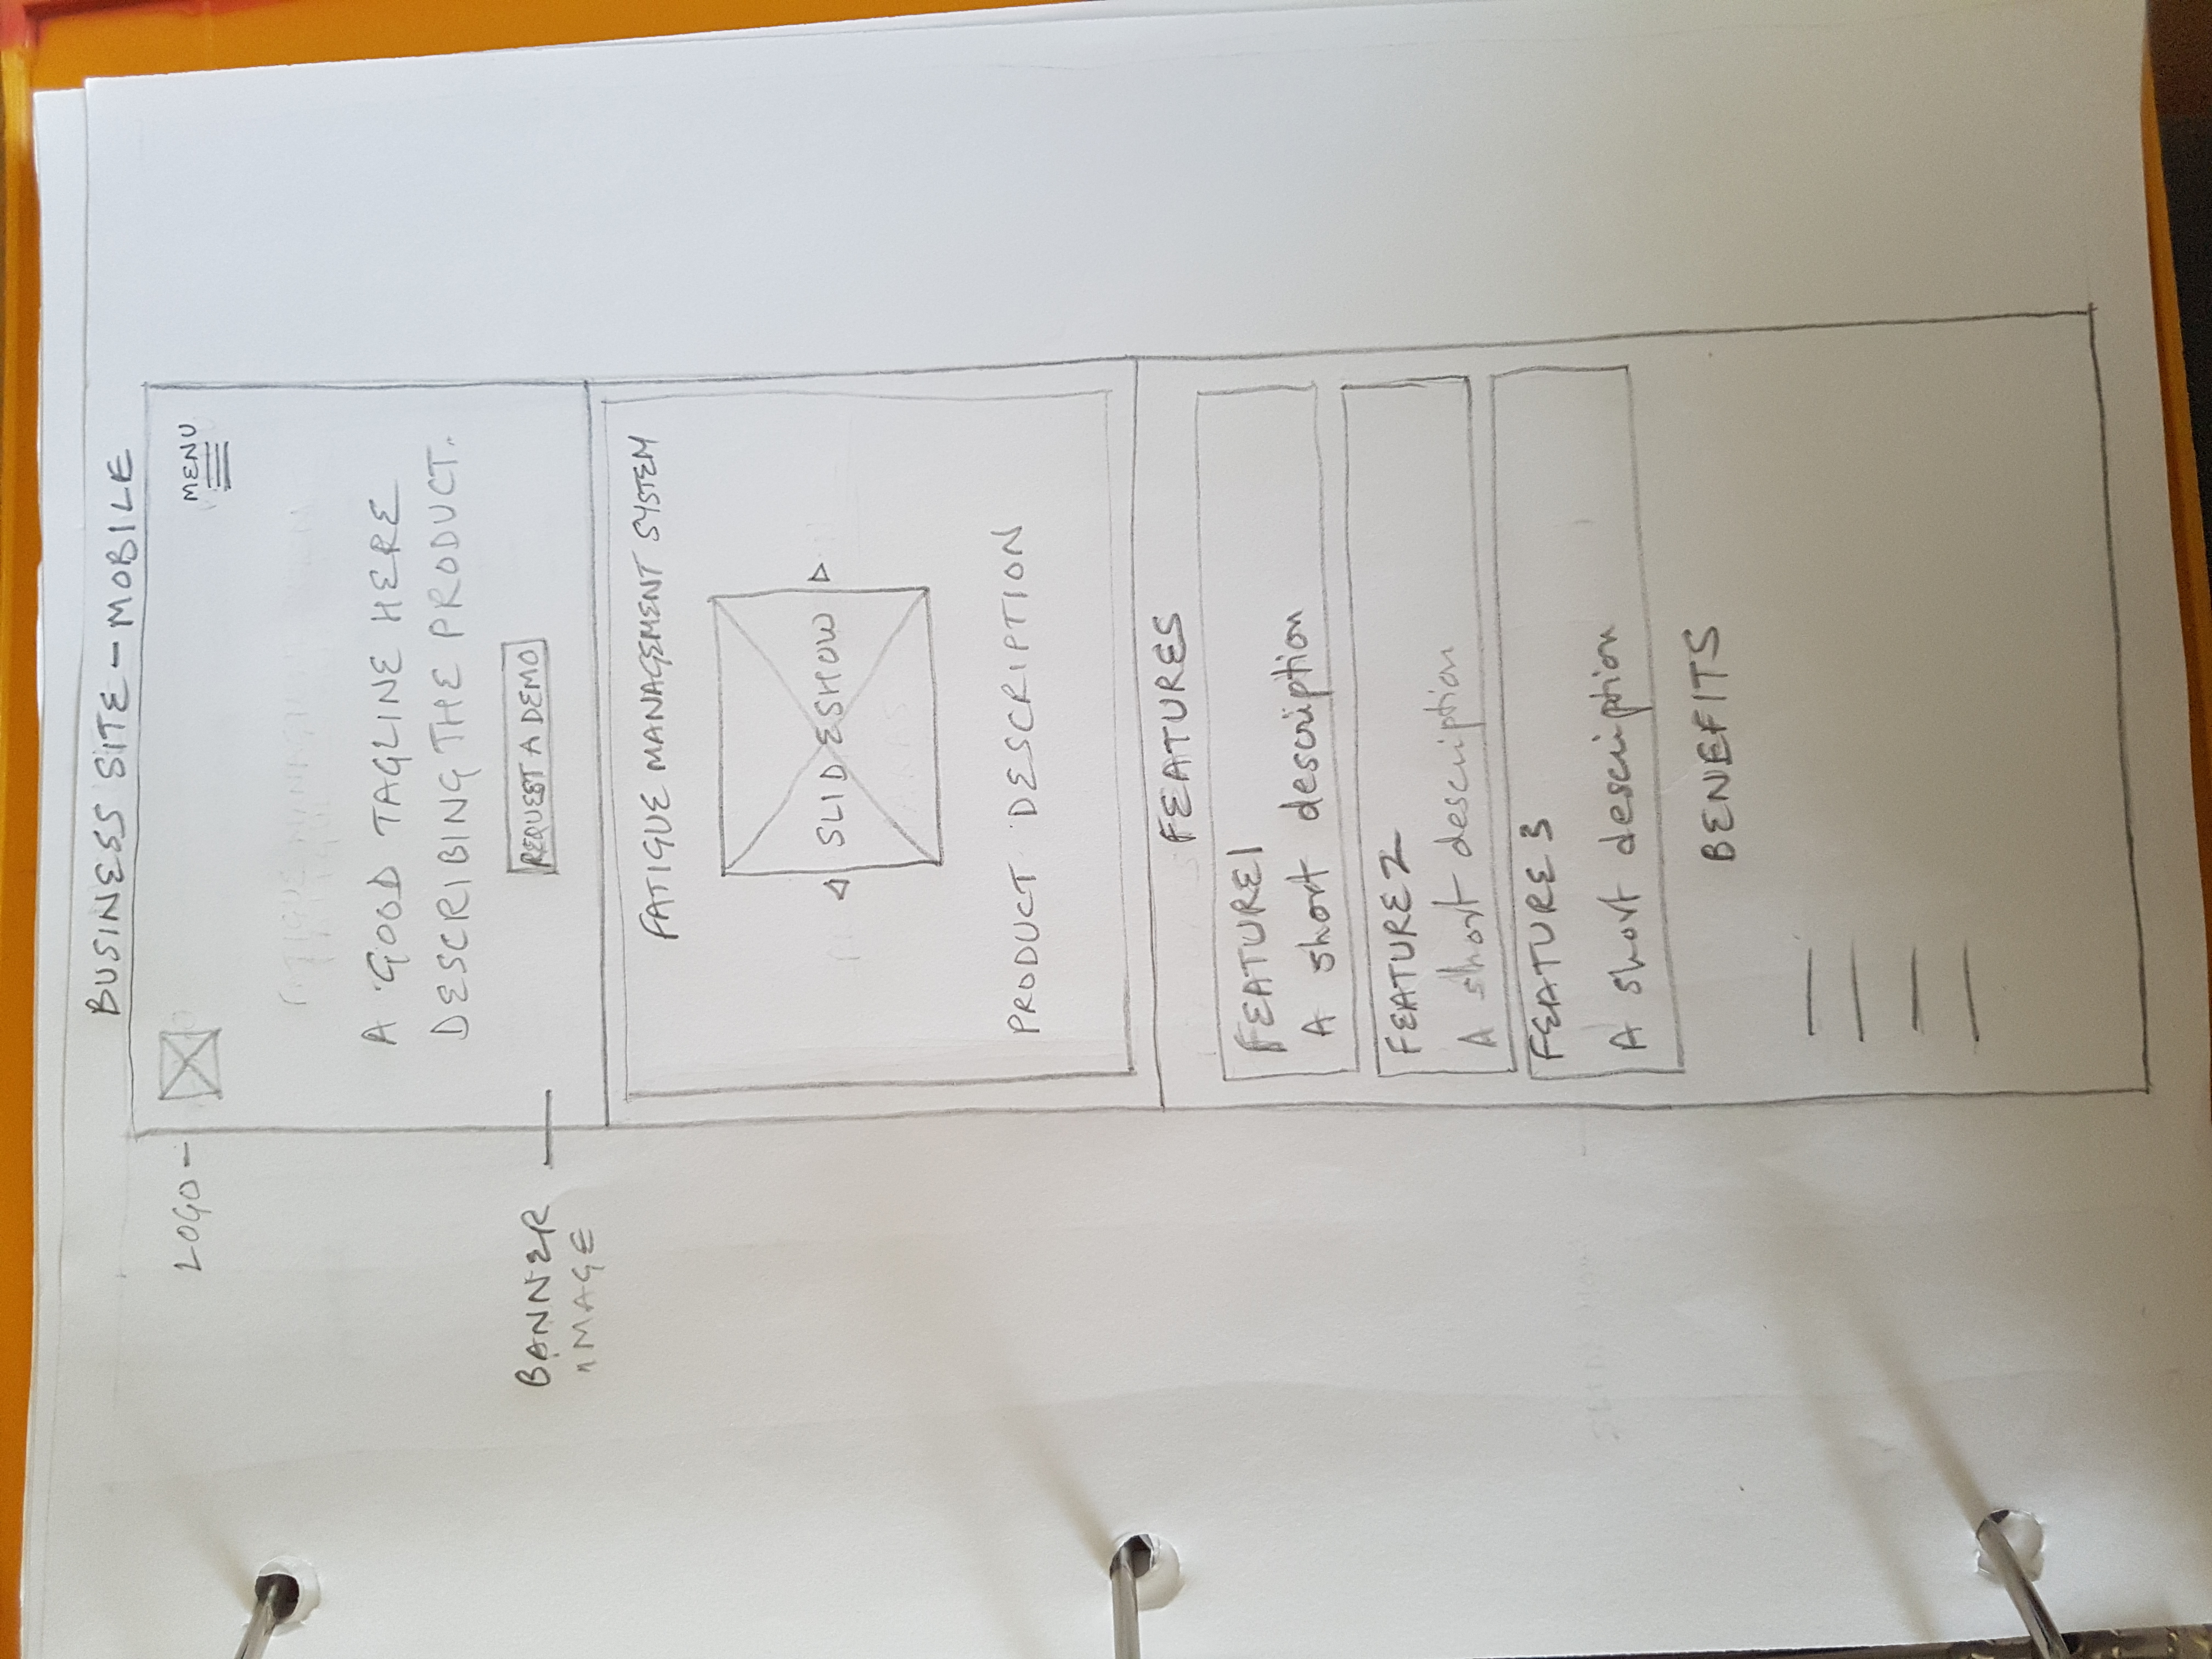 BUSINESS SITE - MOBILE
LOGO -
MENU
A GOOD TAGLINE HERE
DESCRIBING THE PRODUCT.
REQUEST A DEMO
BANNER
IMAGE
FATIGUE MANAGEMENT SYSTEM
SLIDESHOW
PRODUCT DESCRIPTION
FEATURES
FEATURE 1
A short description
FEATURE 2
A short description
FEATURE 3
A short description
BENEFITS